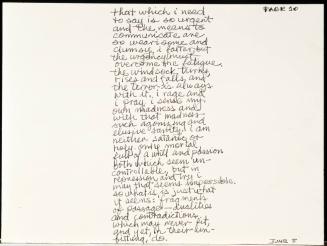 PAGE 10
that which i need
to say is so urgent
and the means to
communicate are
so wearisome and
clumsy, i falter, but
the urgency must
overcome the fatigue.
the windsock turns,
rises and falls, and
the terror is always
with it. i rage and
i pray. i sense my
own madness and
with that madness
such agonising and
elusive sanity. i am
neither satanic or
holy, only mortal
full of a will and passion
both which seem un-
controllable, but in
repression, and try i
may that seems impossible.
so what is is just what
it seems: fragments
or passages — dualities
and contradictions,
which may never fit,
and yet, in their un-
fitting, do.
JUNE 5